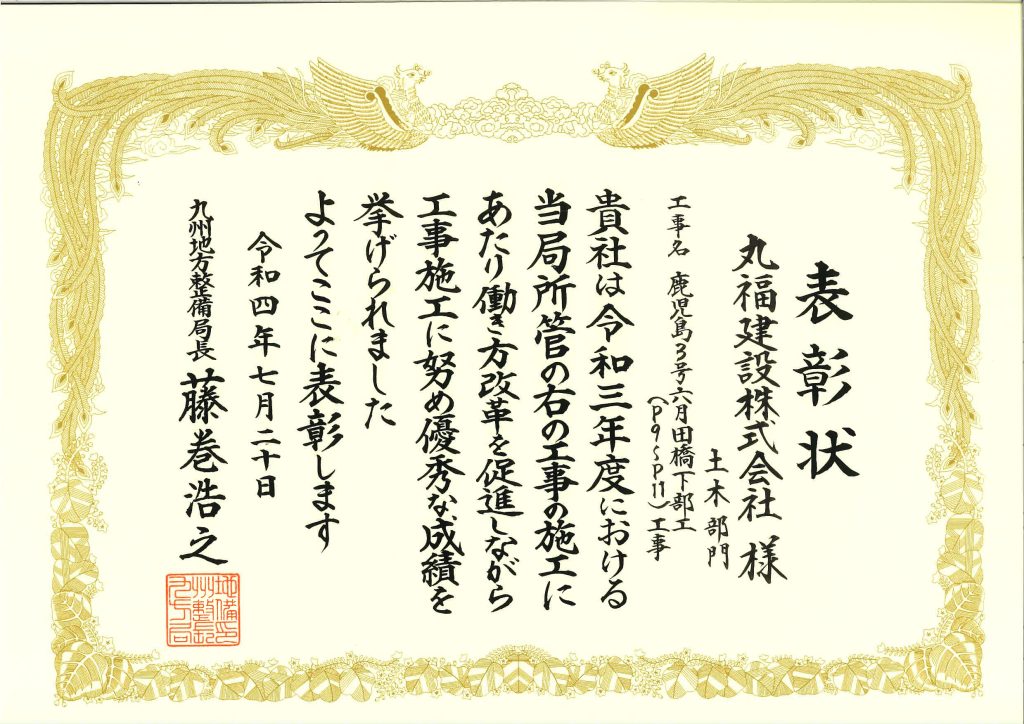 表彰状
丸福建設株式会社 様
土木部門
工事名 鹿児島3号六月田橋下部工
(P9~P11)工事
貴社は令和三年度における
当局所管の右の工事の施工に
あたり働き方改革を促進しながら
工事施工に努め優秀な成績を
挙げられました
よってここに表彰します
令和四年七月二十日
九州地方整備局長 藤巻浩之